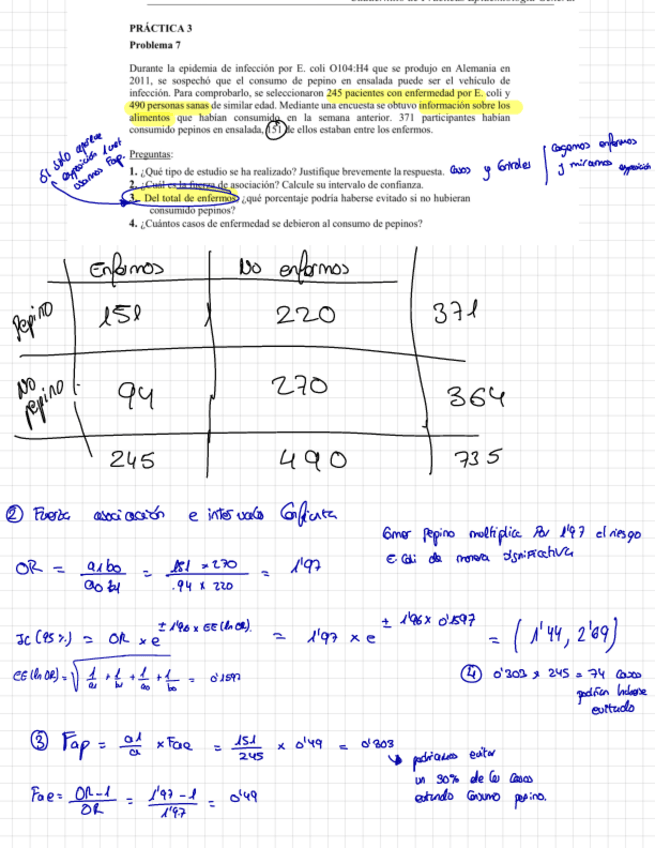 PRÁCTICA 3
Problema 7
Durante la epidemia de infección por E. coli O104:H4 que se produjo en Alemania en
2011, se sospechó que el consumo de pepino en ensalada puede ser el vehículo de
infección. Para comprobarlo, se seleccionaron 245 pacientes con enfermedad por E. coli y
490 personas sanas de similar edad. Mediante una encuesta se obtuvo información sobre los
alimentos que habían consumido en la semana anterior. 371 participantes habían
consumido pepinos en ensalada, 151 de ellos estaban entre los enfermos.
Preguntas:
1. ¿Qué tipo de estudio se ha realizado? Justifique brevemente la respuesta. Casos y Controles
cogemos enfermos
y miramos exposición
2. ¿Cuál es la fuerza de asociación? Calcule su intervalo de confianza.
3. Del total de enfermos, ¿qué porcentaje podría haberse evitado si no hubieran
consumido pepinos?
4. ¿Cuántos casos de enfermedad se debieron al consumo de pepinos?
Enfermos No enfermos
Pepino 151 220 371
No pepino 94 270 364
245 490 735
② Fuerza asociación e intervalo Confianza
Comer pepino multiplica por 1'97 el riesgo
E. Coli de manera significativa
OR = a1 b0 / a0 b1 = 151 × 270 / 94 × 220 = 1'97
IC (95%) = OR × e ± 1'96 × EE(ln OR) = 1'97 × e ± 1'96 × 0'1597 = (1'44, 2'69)
EE(ln OR) = √ 1/a1 + 1/b1 + 1/a0 + 1/b0 = 0'1597
④ 0'303 × 245 = 74 casos
podrían haberse
evitado
③ Fap = a1/a × Fae = 151/245 × 0'49 = 0'303
podríamos evitar
un 30% de los casos
evitando consumo pepino.
Fae = OR-1 / OR = 1'97 - 1 / 1'97 = 0'49